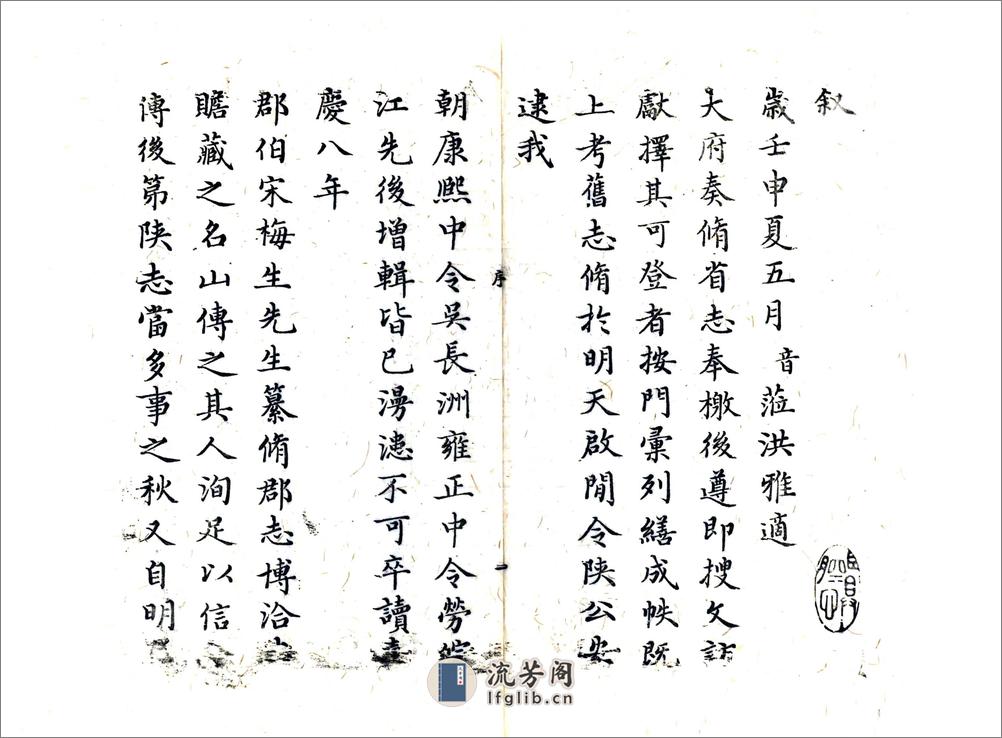 叙
歲壬申夏五月音蒞洪雅適
大府奏脩省志奉檄後遵即搜文訪
獻擇其可登者按門彙列繕成帙既
上考舊志脩於明天啟間令陝公安
逮我
序
一
朝康熙中令吳長洲雍正中令勞
江先後增輯皆已漫漶不可卒讀
慶八年
郡伯宋梅生先生纂脩郡志博洽
贍藏之名山傳之其人洵足以信
傳後第陝志當多事之秋又自明
流芳阁
lfglib.cn